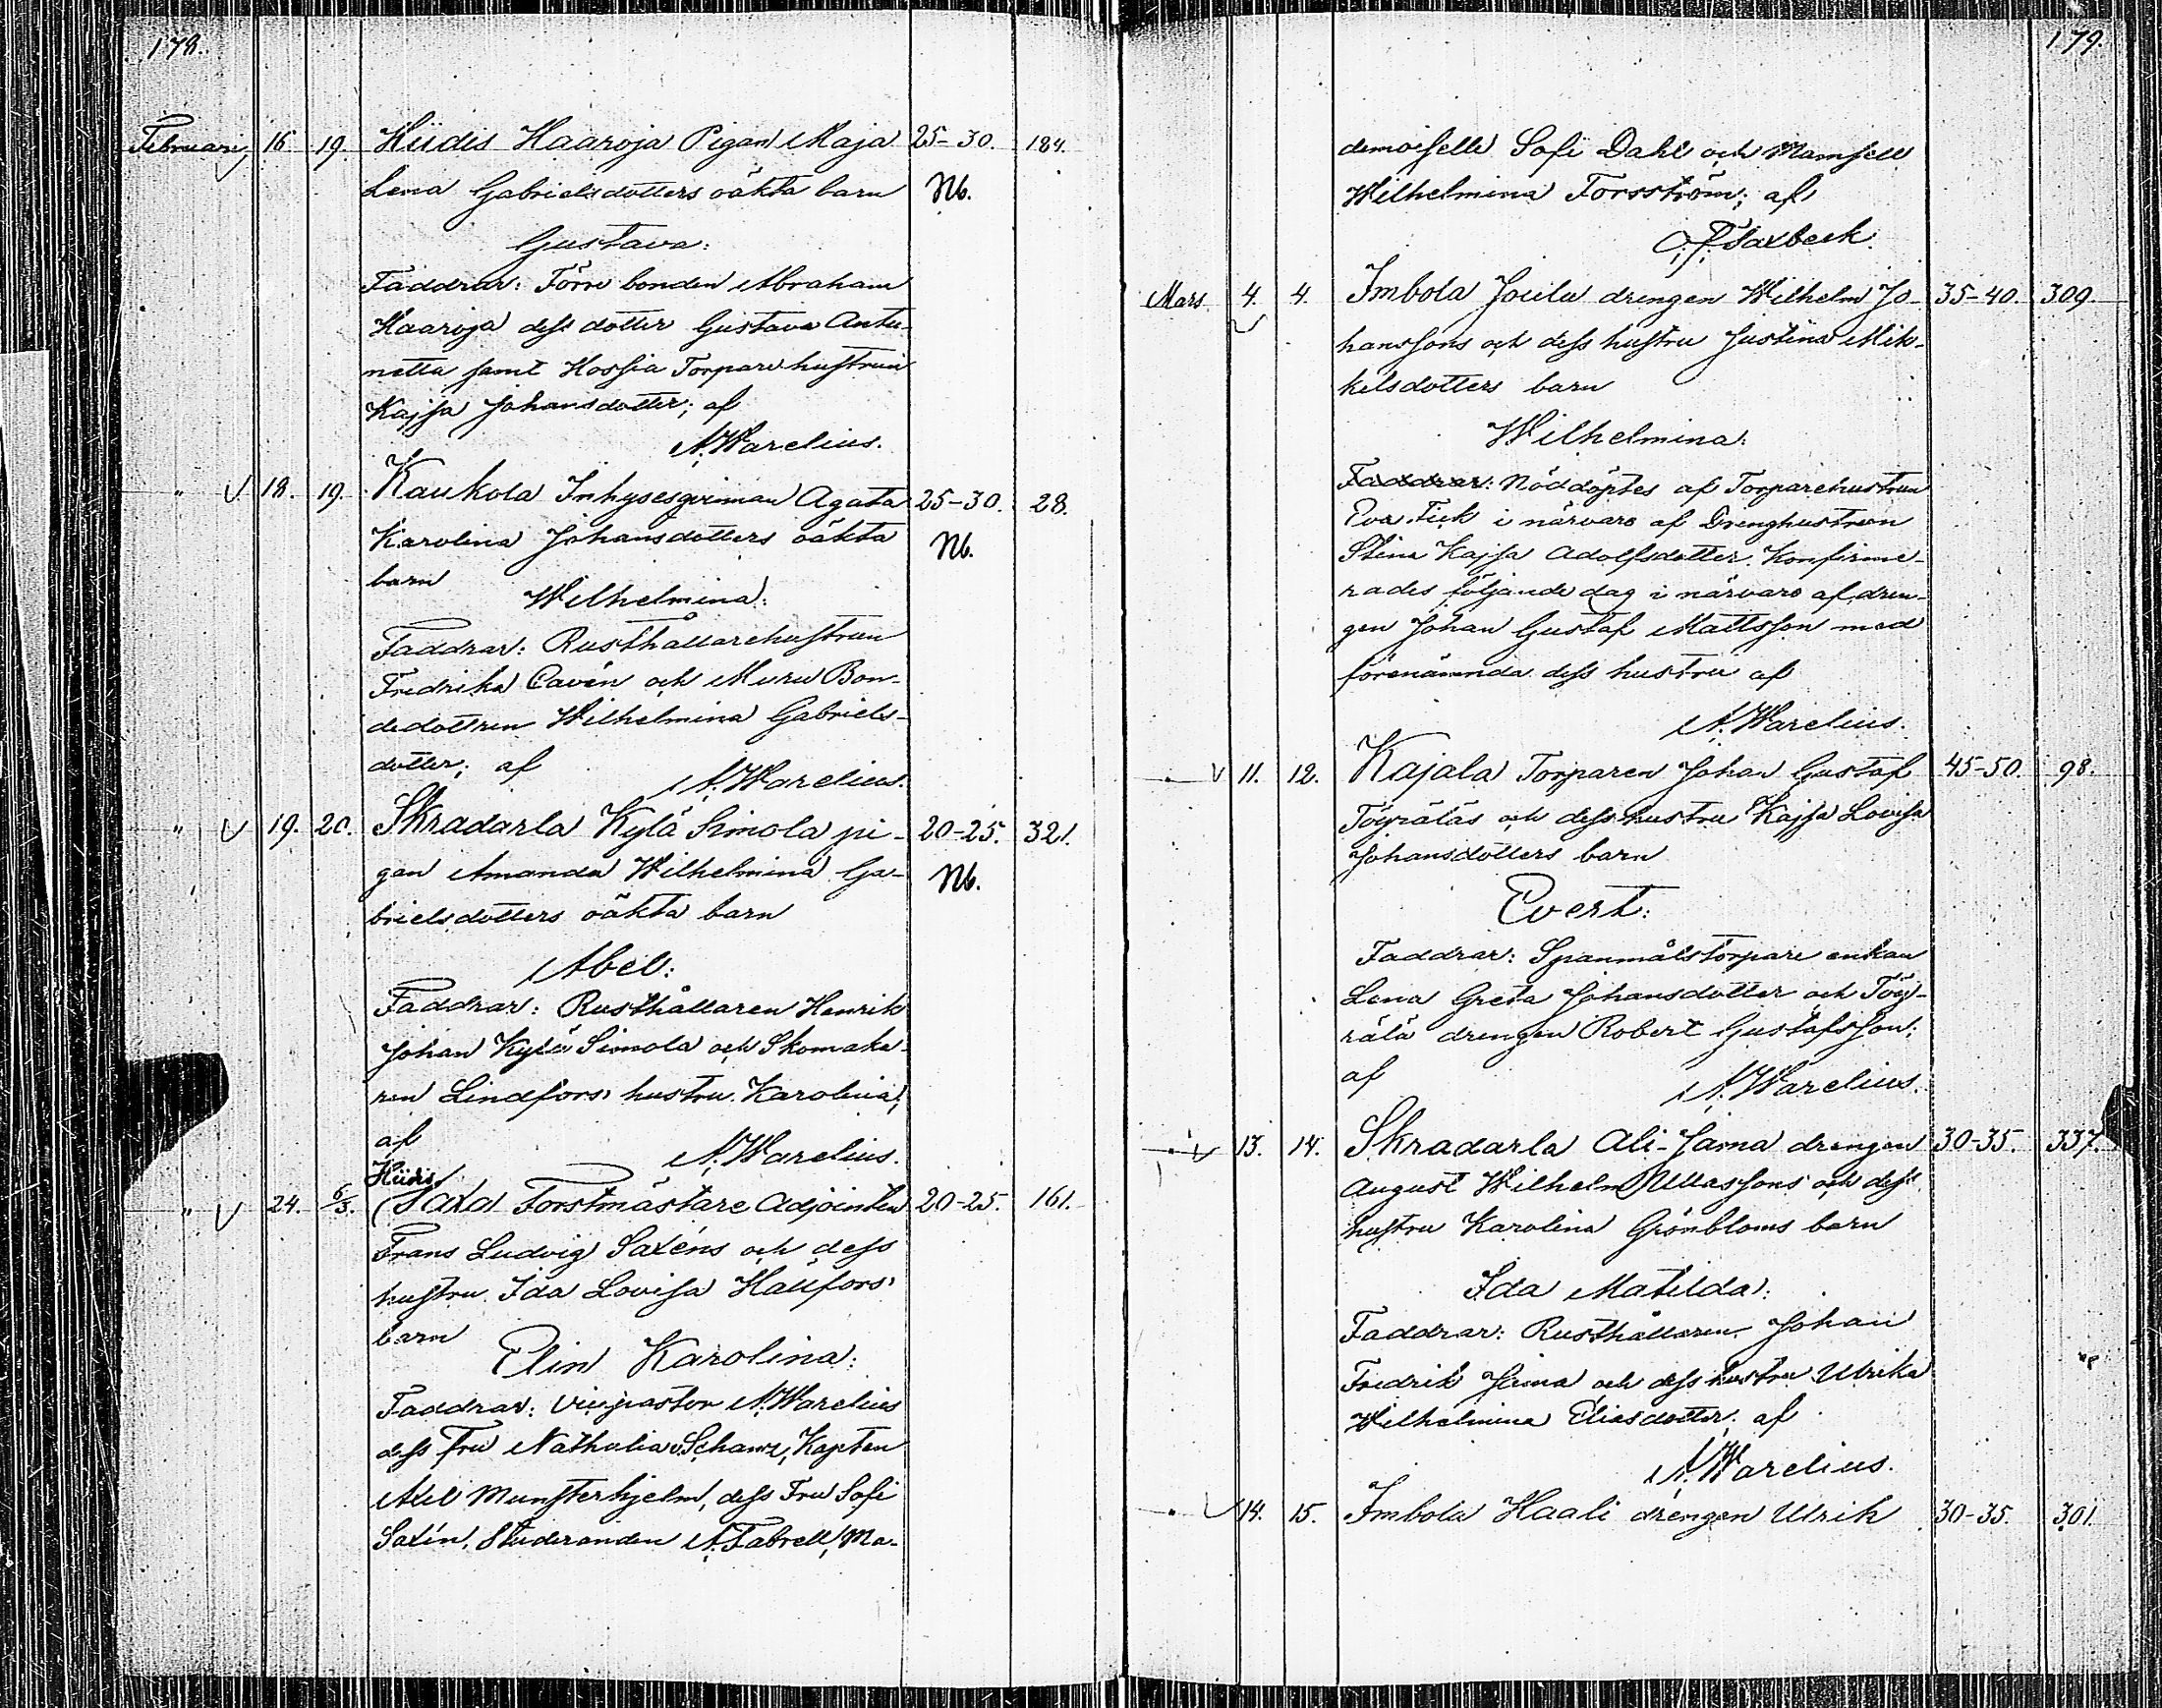 178.
Februarij 16 19. Hiidis Haaroja Pigan Maja 25-30. 184.
Lena Gabrielsdotters oäkta barn Nb.
Gustava:
Faddrar: Förre bonden Abraham
Haaroja dess dotter Gustava Antu-
netta samt Hossia Torpare hustrun
Kajsa Johansdotter; af
A. Warelius.
" V 18. 19. Kaukola Inhysesqvinnan Agata 25-30. 28.
Karolina Johansdotters oäkta Nb.
barn
Wilhelmina:
Faddrar: Rusthållarehustrun
Fredrika Cavén och Muru Bon-
dedottren Wilhelmina Gabriels-
dotter; af
A. Warelius.
" V 19. 20. Skradarla Kylä Simola pi- 20-25. 321.
gan Amanda Wilhelmina Ga- Nb.
brielsdotters oäkta barn
Abel:
Faddrar: Rusthållaren Henrik
Johan Kylä Simola och Skomaka-
ren Lindfors hustru Karolina;
af
A. Warelius.
Hiidis
" V 24. 6/3. Saxa Forstmästare Adjointen 20-25. 161.
Frans Ludvig Saxéns och dess
hustru Ida Lovisa Hallfors
barn
Elin Karolina:
Faddrar: Vicepastor A. Warelius
dess fru Nathalia v. Schanz, Kapten
Axel Munsterhjelm, dess Fru Sofi
Saxén, Studeranden A. Fabrell, Ma-
179.
demoiselle Sofi Dahl och Mamsell
Wilhelmina Forsström; af
Flaxbeck
Mars 4. 4. Imbola Joula drengen Wilhelm Jo- 35-40. 309.
hanssons och dess hustru Justina Mik-
kelsdotters barn
Wilhelmina:
Faddrar: Nöddöptes af Torparehustrun
Eva Fick i närvaro af Drenghustrun
Stina Kajsa Adolfsdotter. Konfirme-
rades följande dag i närvaro af dren-
gen Johan Gustaf Mattsson med
förenämnda dess hustru af
A. Warelius.
" V 11. 12. Kajala Torparen Johan Gustaf 45-50. 98.
Töyräläs och dess hustru Kajsa Lovisa
Johansdotters barn
Evert:
Faddrar: Spanmålstorpare enkan
Lena Greta Johansdotter och Töy-
rälä drengen Robert Gustafsson;
af
A. Warelius.
" V 13. 14. Skradarla Ali-Jama drengen 30-35. 337.
August Wilhelm Ullassons och dess
hustru Karolina Grönbloms barn
Ida Matilda:
Faddrar: Rusthållaren Johan
Fredrik Jama och dess hustru Ulrika
Wilhelmina Eliasdotter; af
A. Warelius.
" V 14. 15. Imbola Haali drengen Ulrik 30-35. 301.